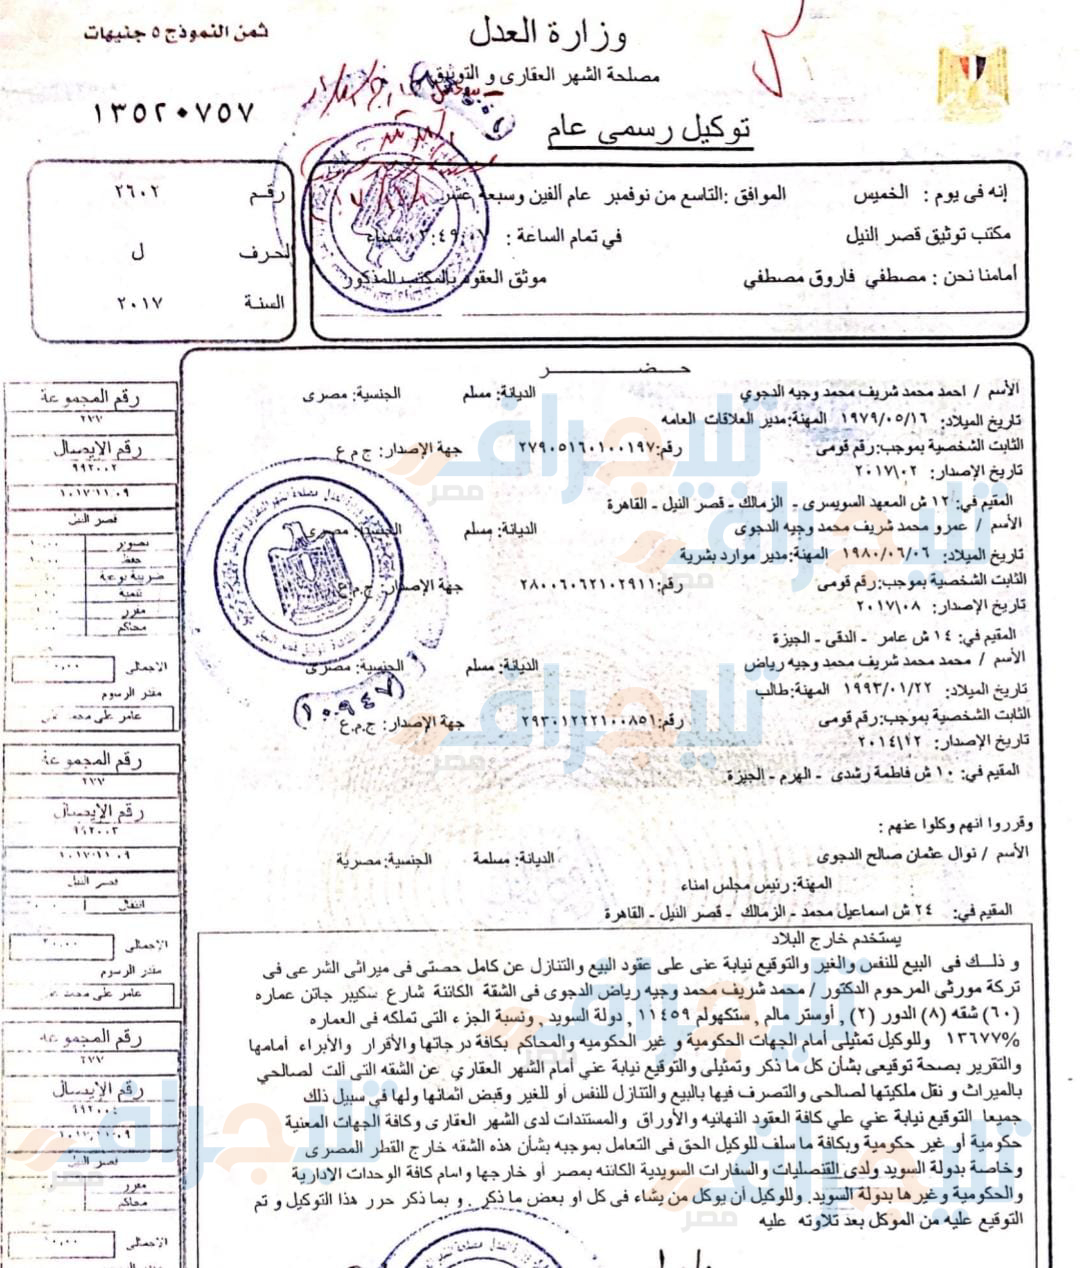 ثمن النموذج ٥ جنيهات
وزارة العدل
مصلحة الشهر العقارى و التوثيق
١٣٥٢٠٧٥٧
توكيل رسمى عام
إنه فى يوم : الخميس الموافق :التاسع من نوفمبر عام ألفين وسبعة عشر
مكتب توثيق قصر النيل في تمام الساعة : مساء
أمامنا نحن : مصطفي فاروق مصطفي موثق العقود بالمكتب المذكور
رقم ٢٦٠٢
الحرف ل
السنة ٢٠١٧
حضر
الأسم / احمد محمد شريف محمد وجيه الدجوي الديانة: مسلم الجنسية: مصرى
تاريخ الميلاد: ١٩٧٩/٠٥/١٦ المهنة:مدير العلاقات العامه
الثابت الشخصية بموجب:رقم قومى رقم:٢٧٩٠٥١٦٠١٠٠١٩٧ جهة الإصدار: ج م ع
تاريخ الإصدار: ٢٠١٧\٠٢
المقيم في: ١٢ ش المعهد السويسرى - الزمالك - قصر النيل - القاهرة
الأسم / عمرو محمد شريف محمد وجيه الدجوى الديانة: مسلم الجنسية: مصرى
تاريخ الميلاد: ١٩٨٠/٠٦/٠٦ المهنة:مدير موارد بشرية
الثابت الشخصية بموجب:رقم قومى رقم:٢٨٠٠٦٠٦٢١٠٢٩١١ جهة الإصدار: ج.م.ع
تاريخ الإصدار: ٢٠١٧\٠٨
المقيم في: ١٤ ش عامر - الدقى - الجيزة
الأسم / محمد محمد شريف محمد وجيه رياض الديانة: مسلم الجنسية: مصرى
تاريخ الميلاد: ١٩٩٣/٠١/٢٢ المهنة:طالب
الثابت الشخصية بموجب:رقم قومى رقم:٢٩٣٠١٢٢٢١٠٠٨٥١ جهة الإصدار: ج.م.ع
تاريخ الإصدار: ٢٠١٤\١٢
المقيم في: ١٠ ش فاطمة رشدى - الهرم - الجيزة
وقرروا انهم وكلوا عنهم :
الأسم / نوال عثمان صالح الدجوى الديانة: مسلمة الجنسية: مصرية
المهنة: رئيس مجلس امناء
المقيم في: ٢٤ ش اسماعيل محمد - الزمالك - قصر النيل - القاهرة
يستخدم خارج البلاد
و ذلك فى البيع للنفس والغير والتوقيع نيابة عنى على عقود البيع والتنازل عن كامل حصتى فى ميراثى الشرعى فى
تركة مورثى المرحوم الدكتور / محمد شريف محمد وجيه رياض الدجوى فى الشقة الكائنة شارع سكيبر جاتن عماره
(٦٠) شقه (٨) الدور (٢) , أوستر مالم , ستكهولم ١١٤٥٩ , دولة السويد , ونسبة الجزء التى تملكه فى العماره
١٣٦٧٧% وللوكيل تمثيلى أمام الجهات الحكومية و غير الحكوميه والمحاكم بكافة درجاتها والأقرار والأبراء أمامها
والتقرير بصحة توقيعى بشأن كل ما ذكر وتمثيلى والتوقيع نيابة عني أمام الشهر العقاري عن الشقه التى آلت لصالحي
بالميراث و نقل ملكيتها لصالحى والتصرف فيها بالبيع والتنازل للنفس أو للغير وقبض اثمانها ولها فى سبيل ذلك
جميعا التوقيع نيابة عني علي كافة العقود النهائيه والأوراق والمستندات لدى الشهر العقارى وكافة الجهات المعنية
حكومية أو غير حكومية وبكافة ما سلف للوكيل الحق فى التعامل بموجبه بشأن هذه الشقه خارج القطر المصرى
وخاصة بدولة السويد ولدى القنصليات والسفارات السويدية الكائنه بمصر أو خارجها وامام كافة الوحدات الادارية
والحكومية وغيرها بدولة السويد. وللوكيل أن يوكل من يشاء فى كل او بعض ما ذكر . و بما ذكر حرر هذا التوكيل و تم
التوقيع عليه من الموكل بعد تلاوته عليه
رقم المجموعة
٢٧٧
رقم الإيصال
٩٩٢٠٠٢
قصر النيل
تصوير
حفظ
تنمية
مقرر
محاكم
الاجمالى
مقدر الرسوم
عامر على محمد
رقم المجموعة
٢٧٧
رقم الإيصال
قصر النيل
انتقال
الاجمالى
مقدر الرسوم
عامر على محمد
رقم المجموعة
٢٧٧
رقم الإيصال
قصر النيل
مقرر
محاكم
الاجمالى
مقدر الرسوم
(١٠٩٤٧)
تليجراف
مصر